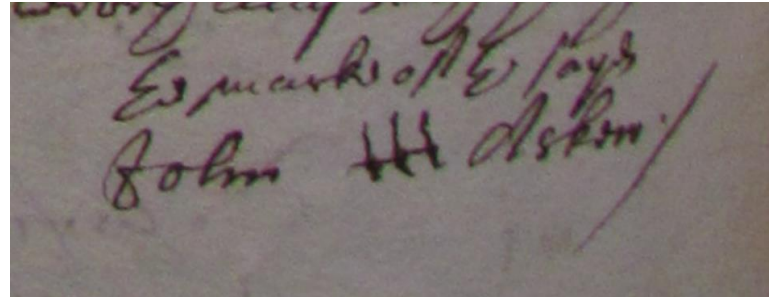 The marke of the sayd
John Asken